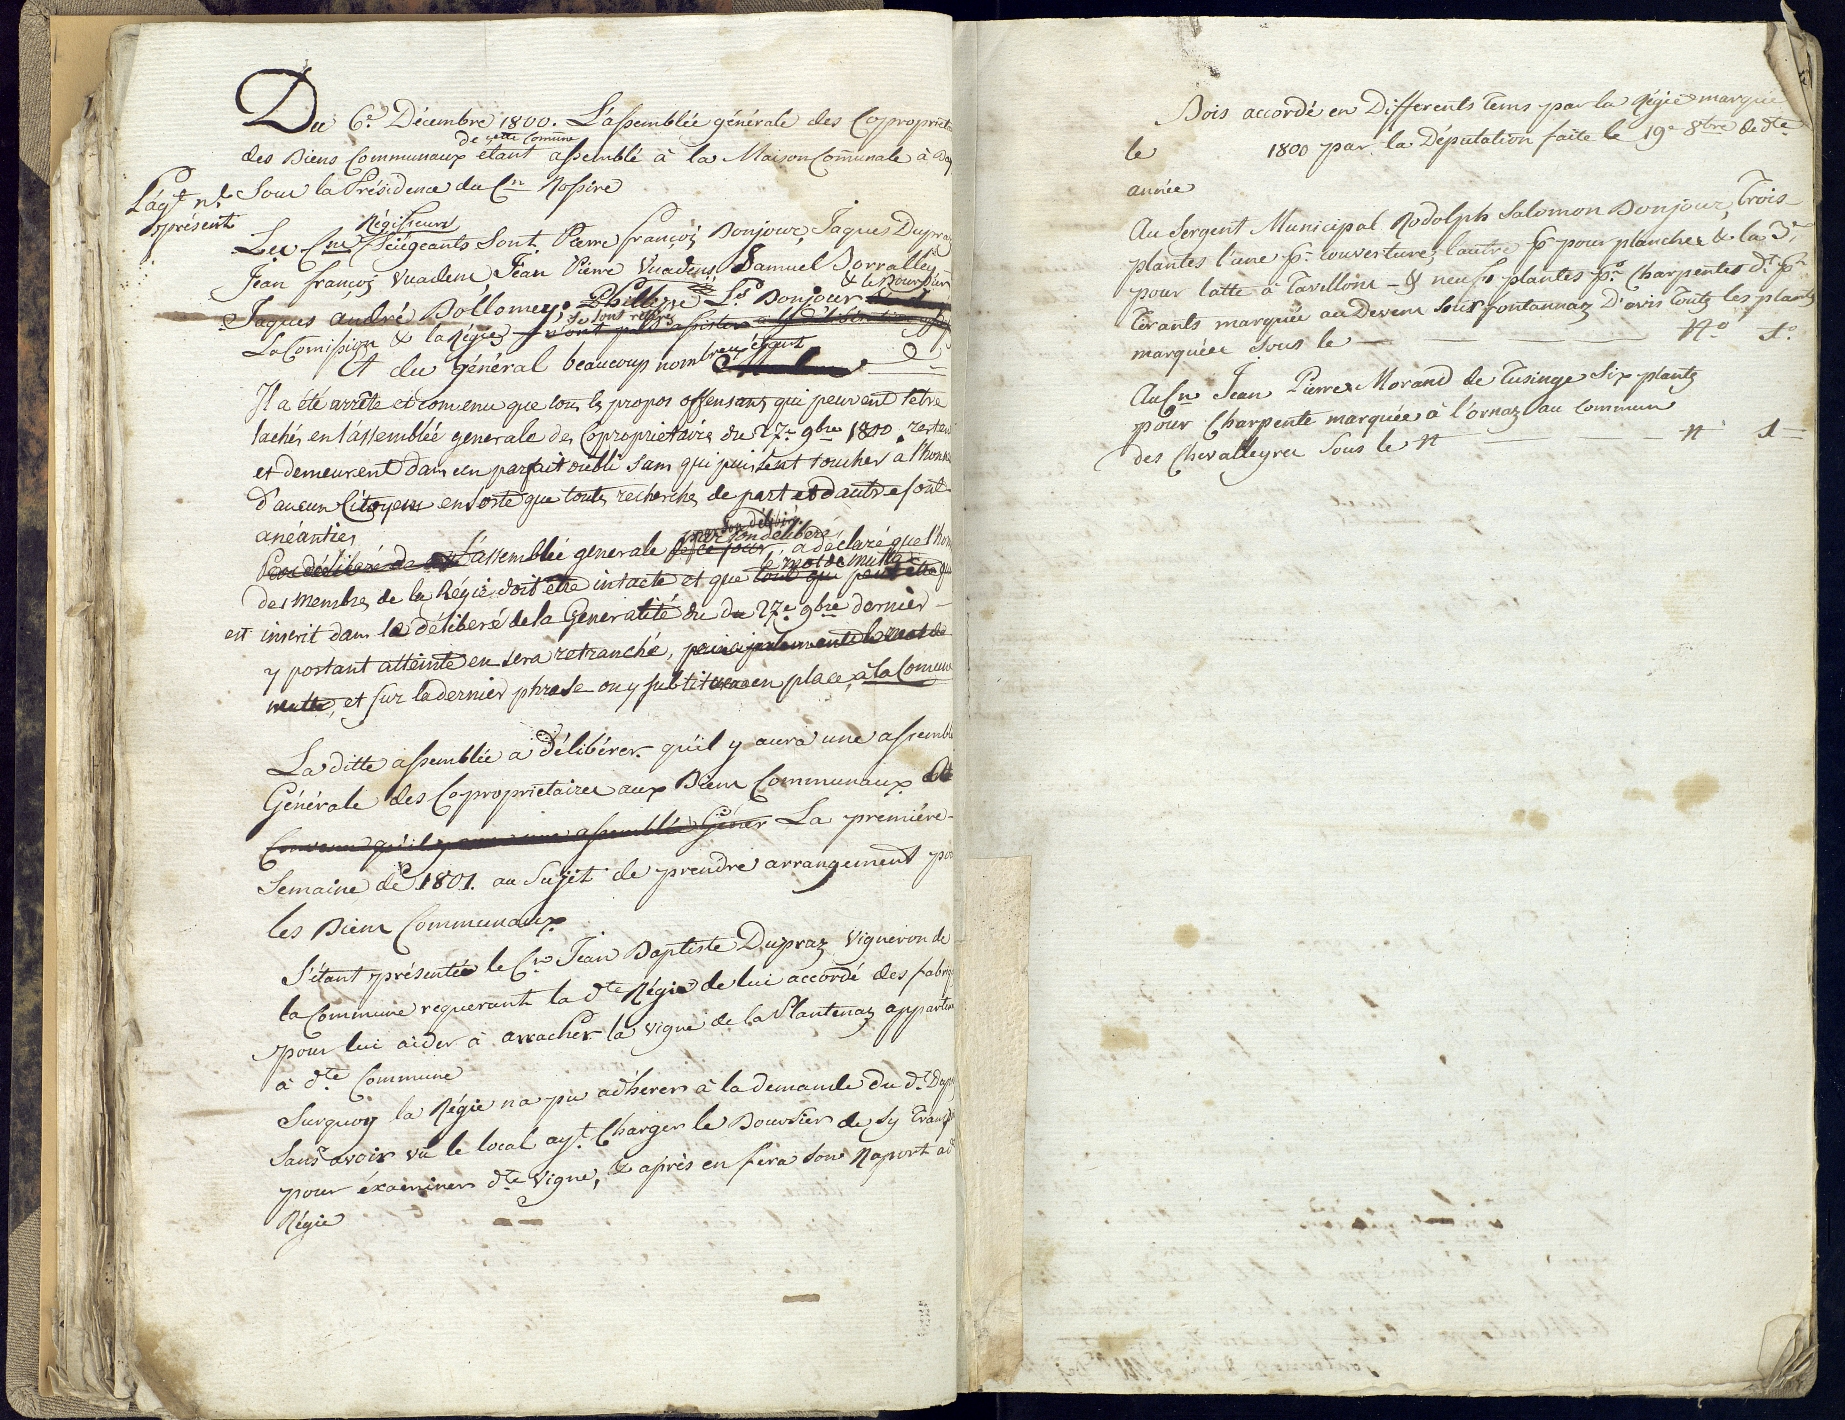 Du 6.e Décembre 1800. L'assemblée générale des Coproprieta
de cette Comune
des Biens Communaux étant assemblé à la Maison Comunale à
Sous la Présidence du C.n Rossire
L'ag.t n.l
présent
Régisseurs
Les C.ns Siégeants Sont Pierre françois Bonjour, Jaques Dupraz
Jean françois Vuadens, Jean Pierre Vuadens Samuel Borralley
& le Boursier
Jaques andré Dollomey, Philippe L.s Bonjour
se sont retirés
La Comission & la Régie n'ont pas assister a
Et du général beaucoup nombreux étant
Il a été arrête et convenu que tous les propos offensans qui peuvent s'etre
lachés en l'assemblée generale des Coproprietaires du 27.e 9bre 1800. restent
et demeurent dans un parfait oubli sans qui puissent toucher a l'honn
D'aucun Citoyens en sorte que toutes recherches de part et d'autre sont
anéanties
par son délibéré
par son délibéré
Par délibéré de L'assemblée generale de ce jour a déclaré que l'hon
le mot de multe
des membres de la Régie doit être intacte et que tout qui peut être qui
est inscrit dans le délibéré de la Generalité du du 27.e 9bre dernier
y portant atteinte en sera retranché, principalement le mot de
multe, et sur la dernier phrase on y substituera en place, à la Comune
La ditte assemblée a délibérer qu'il y aura une assemblé
Générale des Coproprietaires aux Biens Communaux
Convenu qu'il y aura une assemblée Géner La première
Semaine de 1801. au Sujet de prendre arrangement po
les Biens Communaux
S'étant présentée le C.n Jean Baptiste Dupraz Vigneron de
la Commune requerant la d.te Régie de lui accordé des fabriq
pour lui aider à arracher la vigne de la Plantenaz apparten
à d.te Commune
Surquoy la Régie n'a pu adhérer à la demande du d.t Dup
Sans avoir vû le local ay.t Charger le Boursier de sy transp
pour éxaminer d.te Vigne, & après en fera son Raport a
Régie
Bois accordé en Differents tems par la Régie marqué
le 1800 par la Députation faite le 19.e 8bre de d.te
année
Au Sergent Municipal Rodolph Salomon Bonjour, Trois
plantes l'une p.r couverture, l'autre p.r pour planches & la 3.e
pour latte à Tavillons & neufs plantes p.r Charpentes d.t p.r
tirants marquée au Devens sous fontannaz D'avis toutes les plantes
marquées sous le N.o 1.o
Au C.n Jean Pierre Morand de Tusinge Six plantes
pour Charpente marquée à l'ornaz au Commun
des Chevalleyres Sous le N N 1